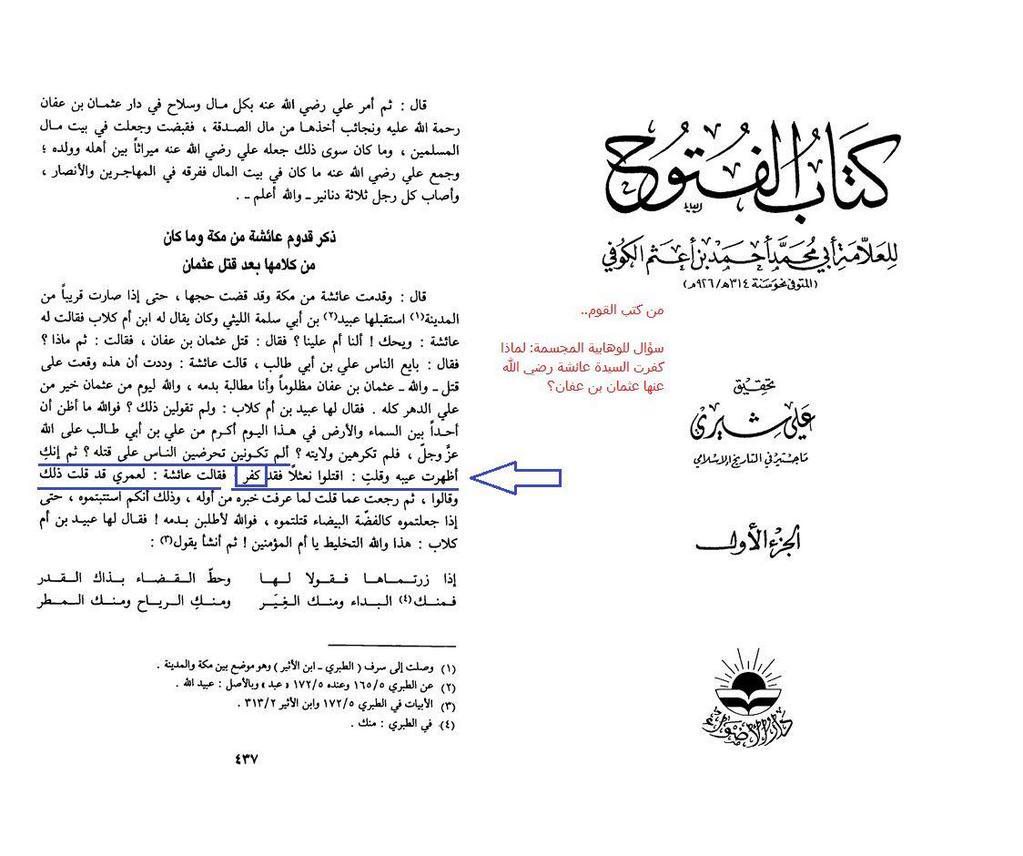 كتاب الفتوح
للعلامة أبي محمد أحمد بن أعثم الكوفي
(المتوفى نحو سنة ٣١٤هـ/٩٢٦م)
من كتب القوم..
سؤال للوهابية المجسمة: لماذا
كفرت السيدة عائشة رضي الله
عنها عثمان بن عفان؟
تحقيق
علي شيري
ماجستير في التاريخ الإسلامي
الجزء الأول
دار الأضواء
قال : ثم أمر علي رضي الله عنه بكل مال وسلاح في دار عثمان بن عفان
رحمة الله عليه ونجائب أخذها من مال الصدقة ، فقبضت وجعلت في بيت مال
المسلمين ، وما كان سوى ذلك جعله علي رضي الله عنه ميراثاً بين أهله وولده ؛
وجمع علي رضي الله عنه ما كان في بيت المال ففرقه في المهاجرين والأنصار ،
وأصاب كل رجل ثلاثة دنانير ـ والله أعلم ـ .
ذكر قدوم عائشة من مكة وما كان
من كلامها بعد قتل عثمان
قال : وقدمت عائشة من مكة وقد قضت حجها ، حتى إذا صارت قريباً من
المدينة(١) استقبلها عبيد(٢) بن أبي سلمة الليثي وكان يقال له ابن أم كلاب فقالت له
عائشة : ويحك ! ألنا أم علينا ؟ فقال : قتل عثمان بن عفان ، فقالت : ثم ماذا ؟
فقال : بايع الناس علي بن أبي طالب ، قالت عائشة : وددت أن هذه وقعت على
قتل ـ والله ـ عثمان بن عفان مظلوماً وأنا مطالبة بدمه ، والله ليوم من عثمان خير من
علي الدهر كله . فقال لها عبيد بن أم كلاب : ولم تقولين ذلك ؟ فوالله ما أظن أن
أحداً بين السماء والأرض في هذا اليوم أكرم من علي بن أبي طالب على الله
عزّ وجلّ ، فلم تكرهين ولايته ؟ ألم تكونين تحرضين الناس على قتله ؟ ثم إنكِ
أظهرت عيبه وقلتِ : اقتلوا نعثلاً فقد كفر فقالت عائشة : لعمري قد قلت ذلك
وقالوا ، ثم رجعت عما قلت لما عرفت خبره من أوله ، وذلك أنكم استتبتموه ، حتى
إذا جعلتموه كالفضّة البيضاء قتلتموه ، فوالله لأطلبن بدمه ! فقال لها عبيد بن أم
كلاب : هذا والله التخليط يا أم المؤمنين ! ثم أنشأ يقول(٣) :
إذا زرتماها فقولا لها وحطّ القضاء بذاك القدر
فمنك(٤) البداء ومنك الغِيَر ومنكِ الرياح ومنك المطر
(١) وصلت إلى سرف ( الطبري ـ ابن الأثير ) وهو موضع بين مكة والمدينة .
(٢) عن الطبري ١٦٥/٥ وعنده ١٧٢/٥ « عبد » وبالأصل : عبيد الله .
(٣) الأبيات في الطبري ١٧٢/٥ وابن الأثير ٣١٣/٢ .
(٤) في الطبري : منك .
٤٣٧